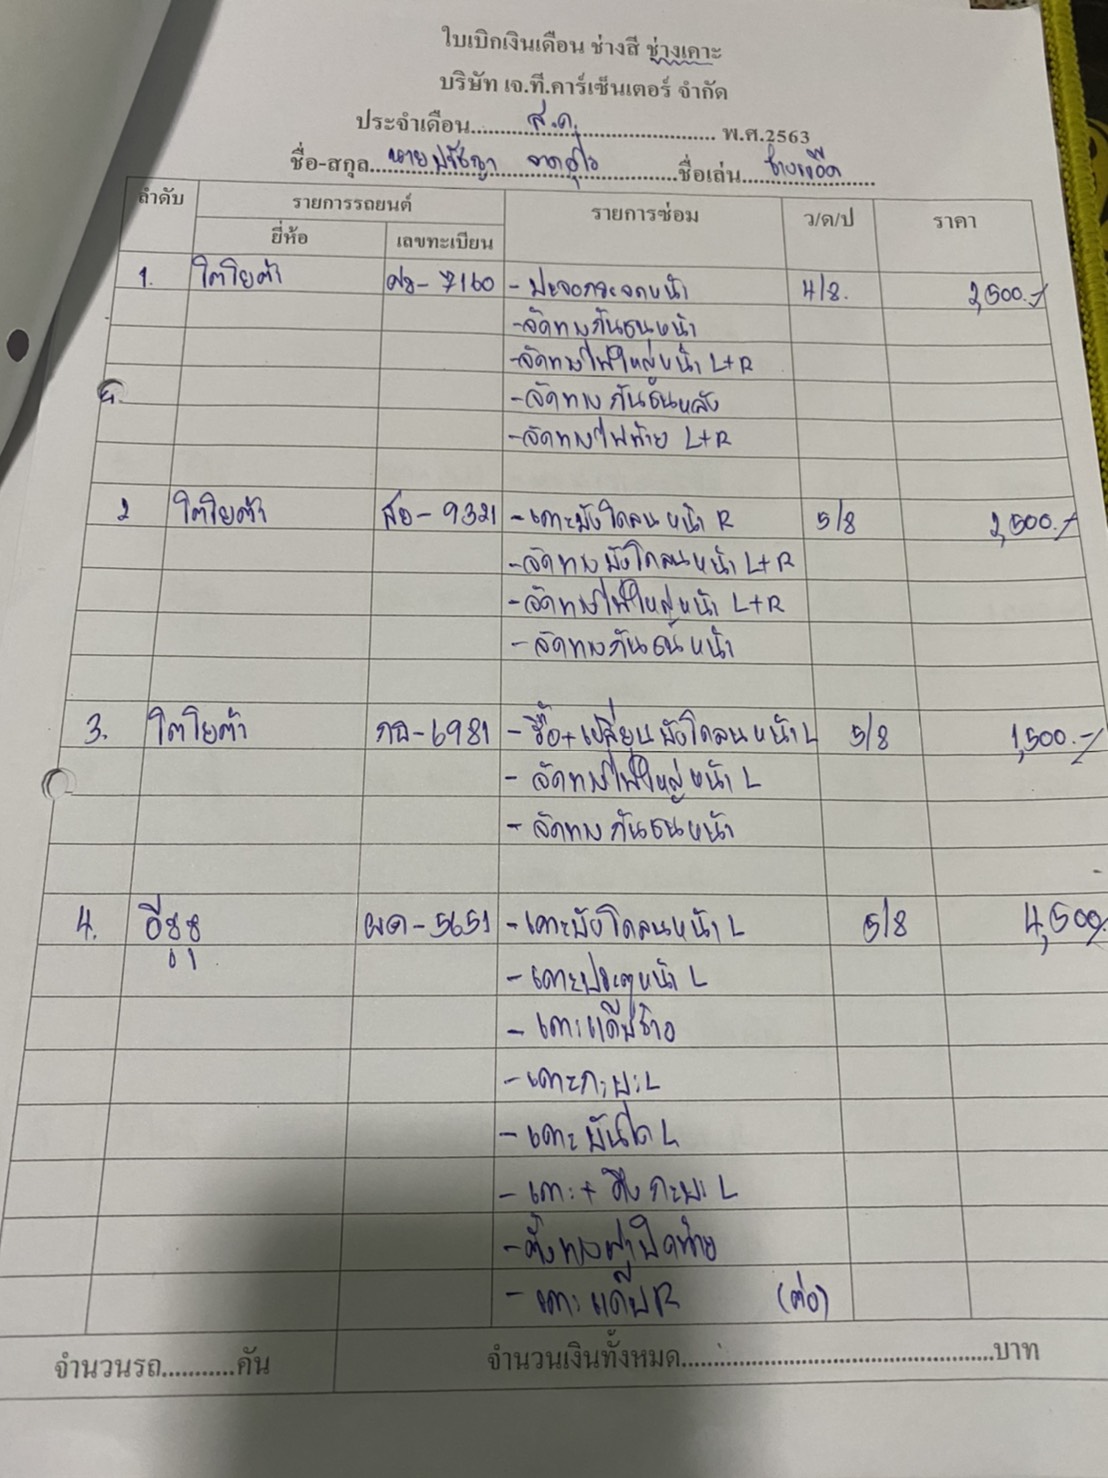 ใบเบิกเงินเดือน ช่างสี ช่างเคาะ
บริษัท เจ.ที.คาร์เซ็นเตอร์ จำกัด
ประจำเดือน.....ส.ค......... พ.ศ.2563
ชื่อ-สกุล..นายปรัชญา..........ชื่อเล่น...........
ลำดับ รายการรถยนต์ รายการซ่อม ว/ด/ป ราคา
ยี่ห้อ เลขทะเบียน
1. โตโยต้า 7160 - ปะจอกระจกหน้า 4/8. 2,500.-
- จัดทางกันชนหน้า
- จัดทางไฟใหญ่หน้า L+R
- จัดทางกันชนหลัง
- จัดทางไฟท้าย L+R
2 โตโยต้า สอ-9321 - เคาะบังโคลนหน้า R 5/8 2,500.-
- จัดทางบังโคลนหน้า L+R
- จัดทางไฟใหญ่หน้า L+R
- จัดทางกันชนหน้า
3. โตโยต้า กฉ-6981 - รื้อ+เปลี่ยนบังโคลนหน้า L 5/8 1,500.-
- จัดทางไฟใหญ่หน้า L
- จัดทางกันชนหน้า
4. อีซูซุ ผค-5651 - เคาะบังโคลนหน้า L 5/8 4,500.
- เคาะประตูหน้า L
- เคาะแค๊ปซ้าย
- เคาะกะบะ L
- เคาะบันได L
- เคาะ+ดึงกะบะ L
- ตั้งทางฝาปิดท้าย
- เคาะแค๊ป R (ต่อ)
จำนวนรถ...........คัน จำนวนเงินทั้งหมด..................................................บาท